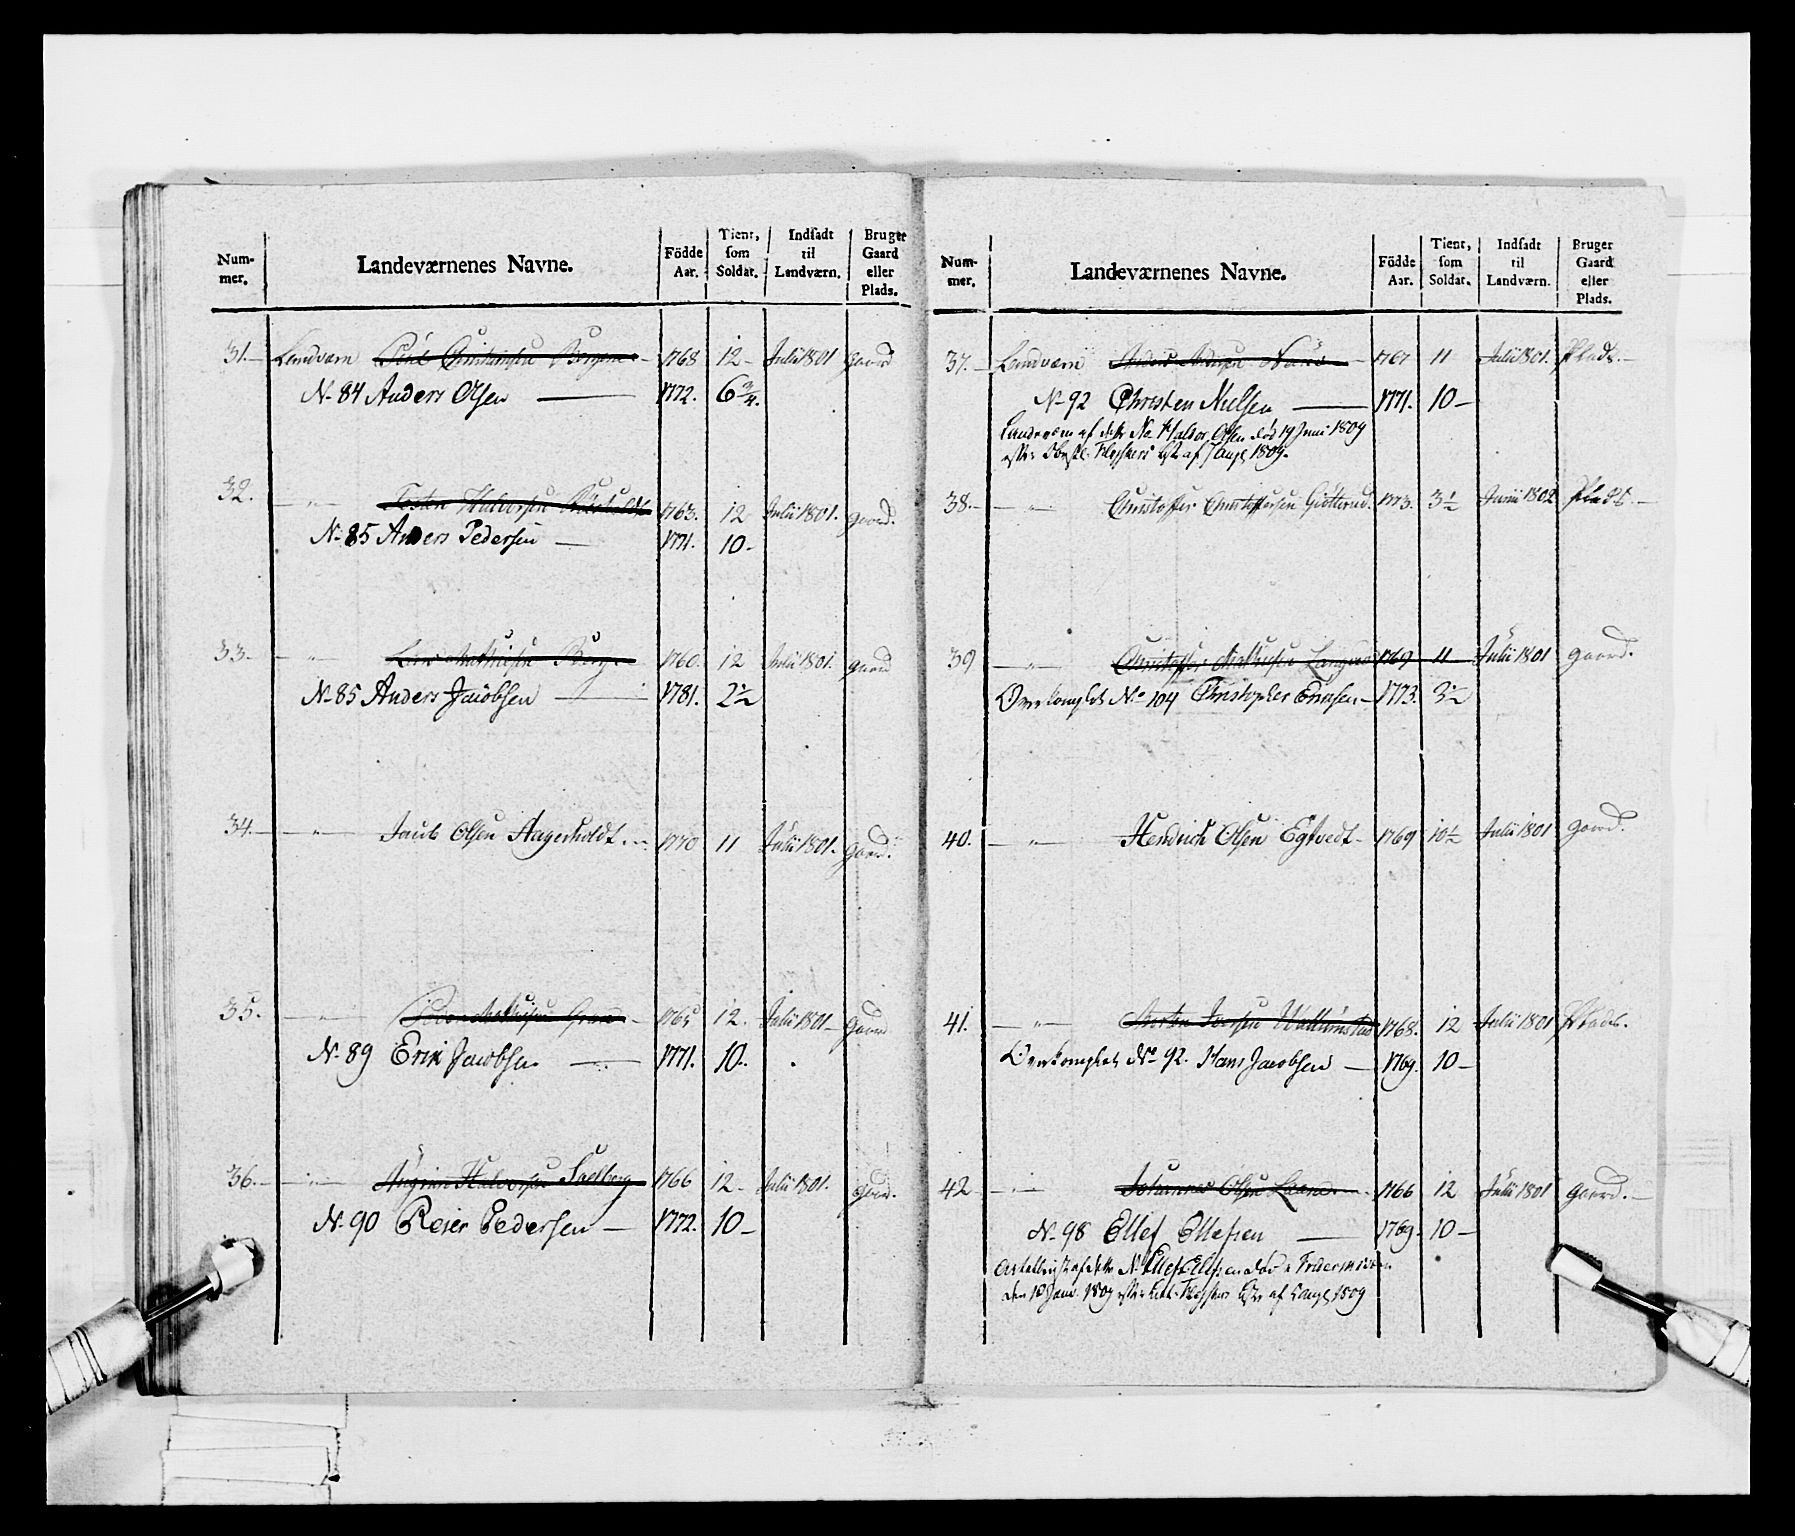 Num-mer. Landeværnenes Navne. Födde Aar. Tient, som Soldat. Indsadt til Landværn. Bruger Gaard eller Plads.
31. Landværn Christiansen 1768 12 Julii 1801 Gaard
No 84 Anders Olsen 1772. 6 3/4.
32. " Halvorsen 1763. 12 Julii 1801. Gaard.
No 85 Anders Pedersen 1771. 10
33. " Lars Mathisen 1760. 12 Julii 1801. Gaard
No 85 Anders Jacobsen 1781. 2 1/2
34. " Olsen Aagerholdt 1770 11 Julii 1801. Gaard.
35. " Peder Mathisen 1765 12. Julii 1801 Gaard
No 89 Erik Jacobsen 1771. 10.
36. " Halvorsen Soelberg 1766 12 Julii 1801. Gaard.
No 90 Reier Pedersen 1772. 10
Num-mer. Landeværnenes Navne. Födde Aar. Tient, som Soldat. Indsadt til Landværn. Bruger Gaard eller Plads.
37. Landværn Anders 1767 11 Julii 1801. Plads.
No 92 Christen Nielsen 1771. 10
Landeværn af dette No Halvor Olsen död 19 Juni 1809
af 1809.
38. " Christoffer Christoffersen 1773. 3 1/2 Junii 1802 Plads.
39 " Christoffer Mathisen 1769 11 Julii 1801 Gaard.
Overkomplet No 104 Christopher Ericksen 1773. 3 1/2
40. " Hendrich Olsen Egtvedt 1769 10 1/2 Julii 1801 Gaard.
41. " Morten Iversen 1768. 12 Julii 1801 Plads.
Overkomplet No 92. Hans Jacobsen 1769. 10
42 " Johannes Olsen 1766 12 Julii 1801 Gaard.
No 98 Ellef Ellefsen 1769. 10
af dette No Ellef Ellefsen död
den 1809 af 1809